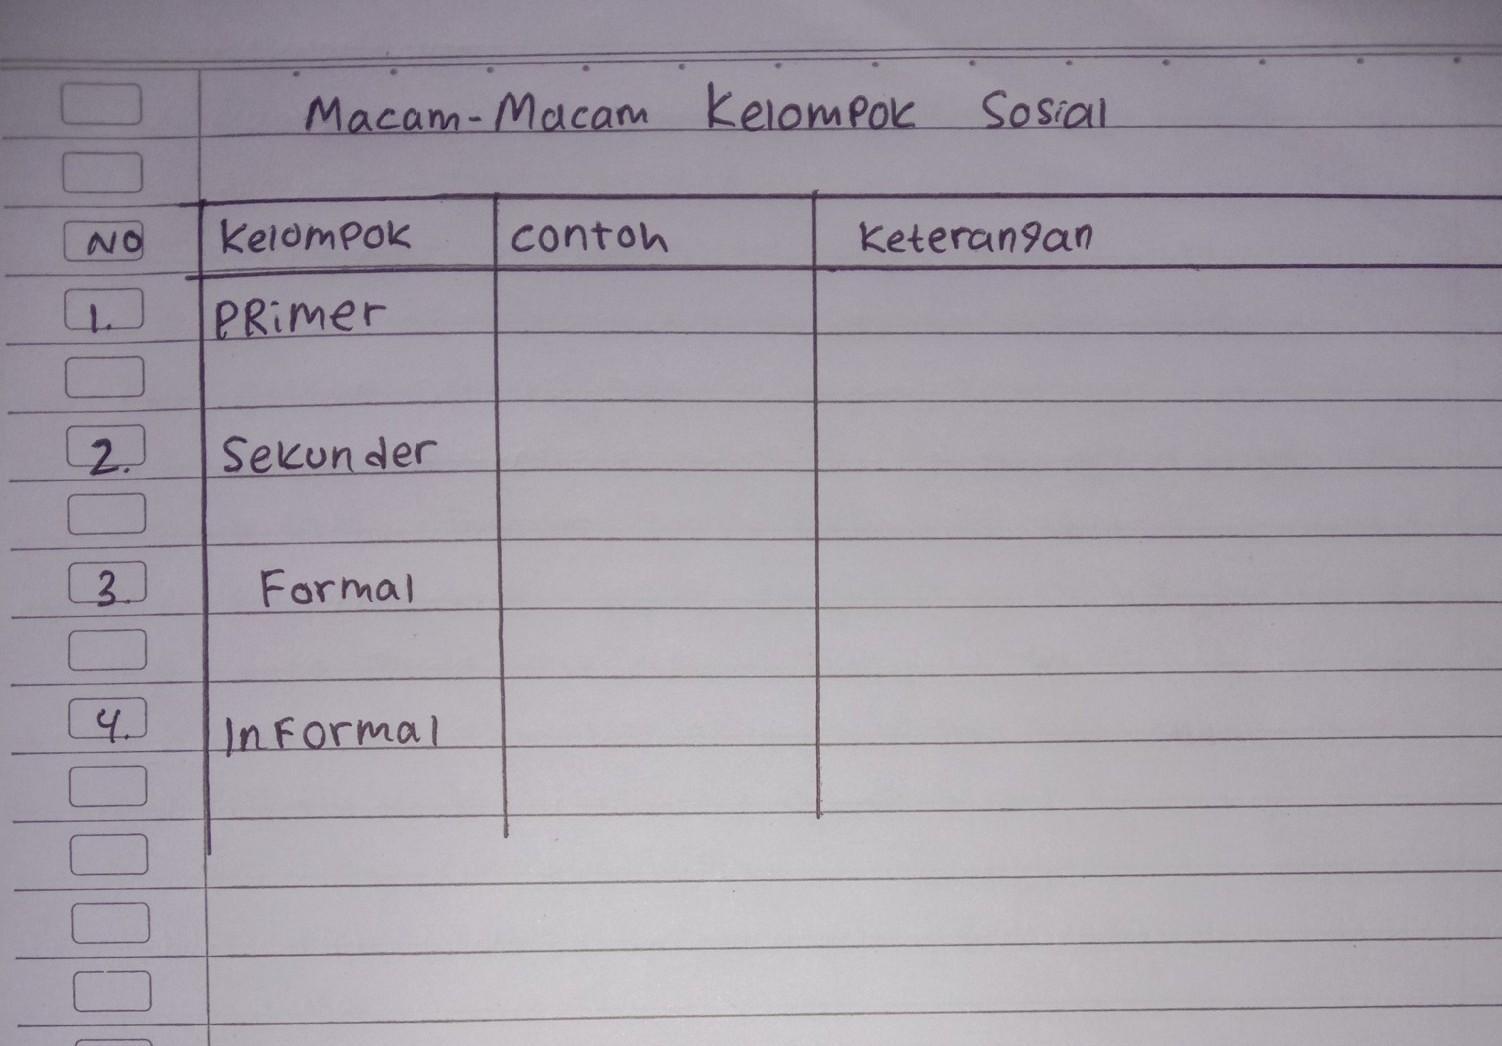 Macam-Macam Kelompok Sosial
NO Kelompok contoh Keterangan
1. PRimer
2. Sekunder
3. Formal
4. InFormal